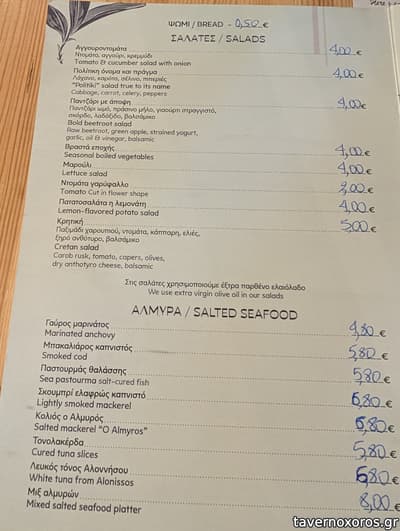 ΨΩΜΙ / BREAD - 0,50 €
ΣΑΛΑΤΕΣ / SALADS
Αγγουροντομάτα 4,00 €
Ντομάτα, αγγούρι, κρεμμύδι
Tomato & cucumber salad with onion
Πολίτικη όνομα και πράγμα 4,00 €
Λάχανο, καρότο, σέλινο, πιπεριές
"Politiki" salad true to its name
Cabbage, carrot, celery, peppers
Παντζάρι με άποψη 4,00 €
Παντζάρι ωμό, πράσινο μήλο, γιαούρτι στραγγιστό,
σκόρδο, λαδόξιδο, βαλσάμικο
Bold beetroot salad
Raw beetroot, green apple, strained yogurt,
garlic, oil & vinegar, balsamic
Βραστά εποχής 4,00 €
Seasonal boiled vegetables
Μαρούλι 4,00 €
Lettuce salad
Ντομάτα γαρύφαλλο 3,00 €
Tomato Cut in flower shape
Πατατοσαλάτα η λεμονάτη 4,00 €
Lemon-flavored potato salad
Κρητική 5,00 €
Παξιμάδι χαρουπιού, ντομάτα, κάππαρη, ελιές,
ξηρό ανθότυρο, βαλσάμικο
Cretan salad
Carob rusk, tomato, capers, olives,
dry anthotyro cheese, balsamic
Στις σαλάτες χρησιμοποιούμε έξτρα παρθένο ελαιόλαδο
We use extra virgin olive oil in our salads
ΑΛΜΥΡΑ / SALTED SEAFOOD
Γαύρος μαρινάτος 4,80 €
Marinated anchovy
Μπακαλιάρος καπνιστός 5,80 €
Smoked cod
Παστουρμάς θαλάσσης 5,80 €
Sea pastourma salt-cured fish
Σκουμπρί ελαφρώς καπνιστό 6,80 €
Lightly smoked mackerel
Κολιός ο Αλμυρός 6,80 €
Salted mackerel "O Almyros"
Τονολακέρδα 5,80 €
Cured tuna slices
Λευκός τόνος Αλοννήσου 6,80 €
White tuna from Alonissos
Μιξ αλμυρών 8,00 €
Mixed salted seafood platter
tavernoxoros.gr